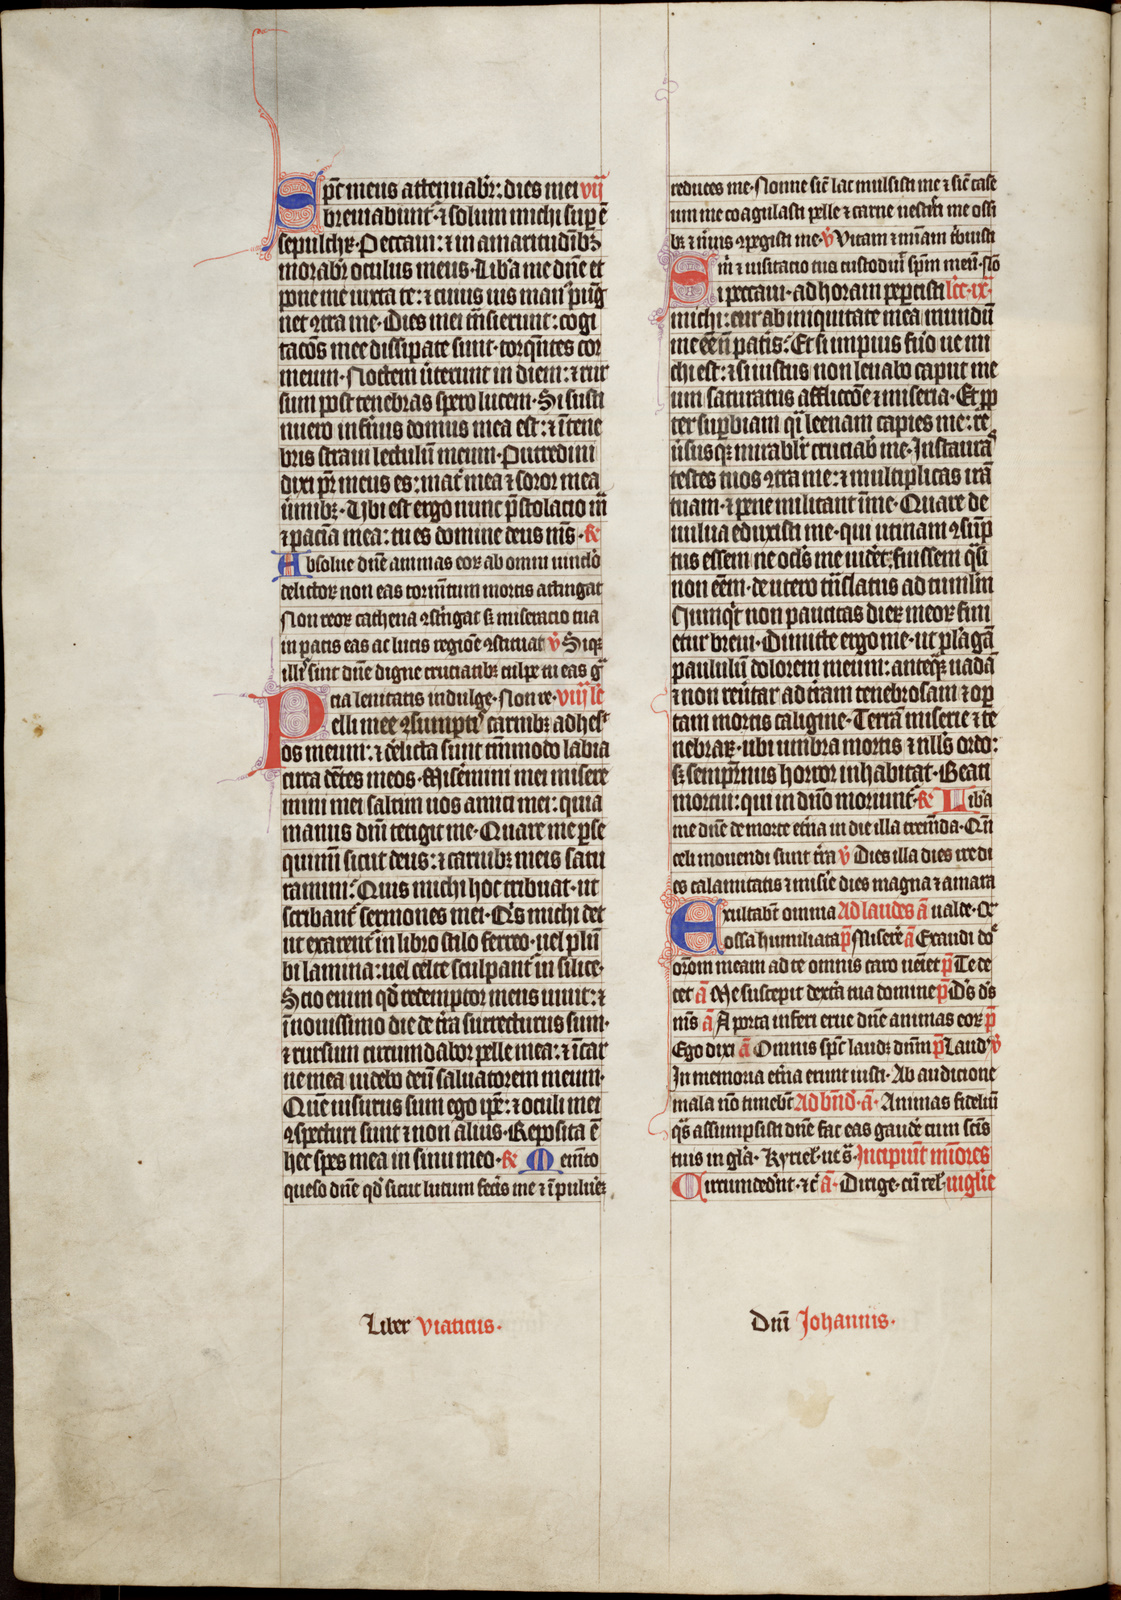 Sp̅c meus attenuabr̅: dies mei vij
breuiabunt᷑ ⁊ solum michi sup̲ e̅
sepulchꝝ. Peccaui: ⁊ in amaritudi̅bꝫ
morabr̅ oculus meus. Lib̾a me dn̅e et
pone me iuxta te: ⁊ cuiusuis man᷒ pug
net ꝯtra me. Dies mei tn̅sierunt: cogi
tac̅o̅s mee dissipate sunt. torq̅ntes cor
meum. Noctem v̾terunt in diem: ⁊ rur
sum post tenebras sp̲o lucem. Si susti
nuero infern̾us domus mea est: ⁊ i̅ tene
bris straui lectulu̅ meum. Putredini
dixi pr̅ meus es: mat̾ mea ⁊ soror mea
v̾mibꝫ. Vbi est ergo nunc p̅stolacio m̅a
⁊ pacia̅ mea: tu es domine deus m̅s. R̸
Absolue dn̅e animas eoꝝ ab omni vinc̅lo
delictoꝝ non eas torm̅tum mortis attingat
Non reoꝝ cathena ꝯstri̅gat sꝫ miseracio tua
in pacis eas ac lucis regio̅e ꝯstituat v̾ Siq̅
illis sint dn̅e digne cruciatibꝫ culpe tu eas gr̅a
tua lenitatis indulge. Non re. viij le
Pelli mee ꝯsumptis carnibꝫ adhesit
os meum: ⁊ d̾elicta sunt tm̅modo labia
circa de̅tes meos. Misem̅ini mei misere
mini mei saltim uos amici mei: quia
manus dn̅i tetigit me. Quare me p̲se
quimi̅ sicut deus: ⁊ carnibꝫ meis satu
ramini: Quis michi hoc tribuat. ut
scribant᷑ sermones mei. Q̾s michi det
ut exarent᷑ in libro stilo ferreo. uel plu̅
bi lamina: uel celte sculpant᷑ in silice.
Scio enim qd̾ redemptor meus uiuit: ⁊
i̅ nouissimo die de t̅ra surrecturus sum.
⁊ rursum circumdabor pelle mea: ⁊ i̅ car
ne mea uidebo deu̅ saluatorem meum.
Que̅ uisurus sum ego ip̅e: ⁊ oculi mei
ꝯspecturi sunt ⁊ non alius. Reposita e̅
hec spes mea in sinu meo. R̸ Mem̅to
queso dn̅e qd̾ sicut lutum feci̅s me ⁊ i̅ pulu̾eꝝ
reduces me. Nonne sic̅ lac mulsisti me ⁊ sic̅ case
um me coagulasti pelle ⁊ carne uestisti me ossi
bꝫ ⁊ n̾uis ꝯpegisti me. v̾ Vitam ⁊ mi̅am t̾buisti
m̅ ⁊ uisitacio tua custodiuit sp̅m meu̅. No̅
Si peccaui. ad horam pep̲cisti lc̅c. ix.
michi: cur ab iniquitate mea mundu̅
me ee̅ n̅ patis̾: Et si impius fu̾o ue mi
chi est: ⁊ si iustus non leuabo caput me
um saturatus afflicc̅o̅e ⁊ miseria. Et ꝓp
ter sup̲biam q̅i leenam capies me: re
u̾susqꝫ mirabilr̅ cruciab̾ me. Instauras
testes tuos ꝯtra me: ⁊ multiplicas ira̅
tuam. ⁊ pene militant i̅ me. Quare de
uulua eduxisti me. qui utinam ꝯsu̅p
tus essem ne oc̅ls me uidet̾. fuissem q̅si
non ee̅m. de utero tn̅slatus ad tumlu̅m
Nunqͥt non paucitas dieꝝ meoꝝ fini
etur breui. Dimitte ergo me. ut pla̅ga̅
paululu̅ dolorem meum: anteqꝫ uada̅
⁊ non reu̾tar ad t̅ram tenebrosam ⁊ op̲
tam mortis caligine. Terra̅ miserie ⁊ te
nebraꝝ. ubi umbra mortis ⁊ null̾s ordo:
sꝫ sempit̾nus horror inhabitat. Beati
mortui: qui in dn̅o moriunt᷑. R̸ Lib̾a
me dn̅e de morte et̾na in die illa trem̅da. Qn̅
celi mouendi sunt t̅ra v̾ Dies illa dies ire di
es calamitatis ⁊ mis̾ie dies magna ⁊ amara
Exultabt̅ omnia Ad laudes a̅ ualde. Or
ossa humiliata p̅ Misere̅ a̅ Exaudi do̅e
oro̅m meam ad te omnis caro ueniet p̅ Te de
cet a̅ Me suscepit dext̾a tua domine p̅ D̅s d̅s
m̅s a̅ A porta inferi erue dn̅e animas eoꝝ p̅
Ego dixi a̅ Omnis sp̅c laudꝫ dn̅m p̅ Laud̾ v̾
In memoria et̾na erunt iusti. Ab audicione
mala no̅ timebt̅ Ad bn̅d̾. a̅. Animas fideliu̅
q̅s assumpsisti dn̅e fac eas gaude̾ cum sc̅is
tuis in gl̅a. Kyriel̾. ut s̾. Incipiunt mi̅ores
Circumded̾nt. ⁊c̅ a̅. Dirige. cu̅ rel̾. uiglie
Liber viaticus.
Dn̅i Johannis.